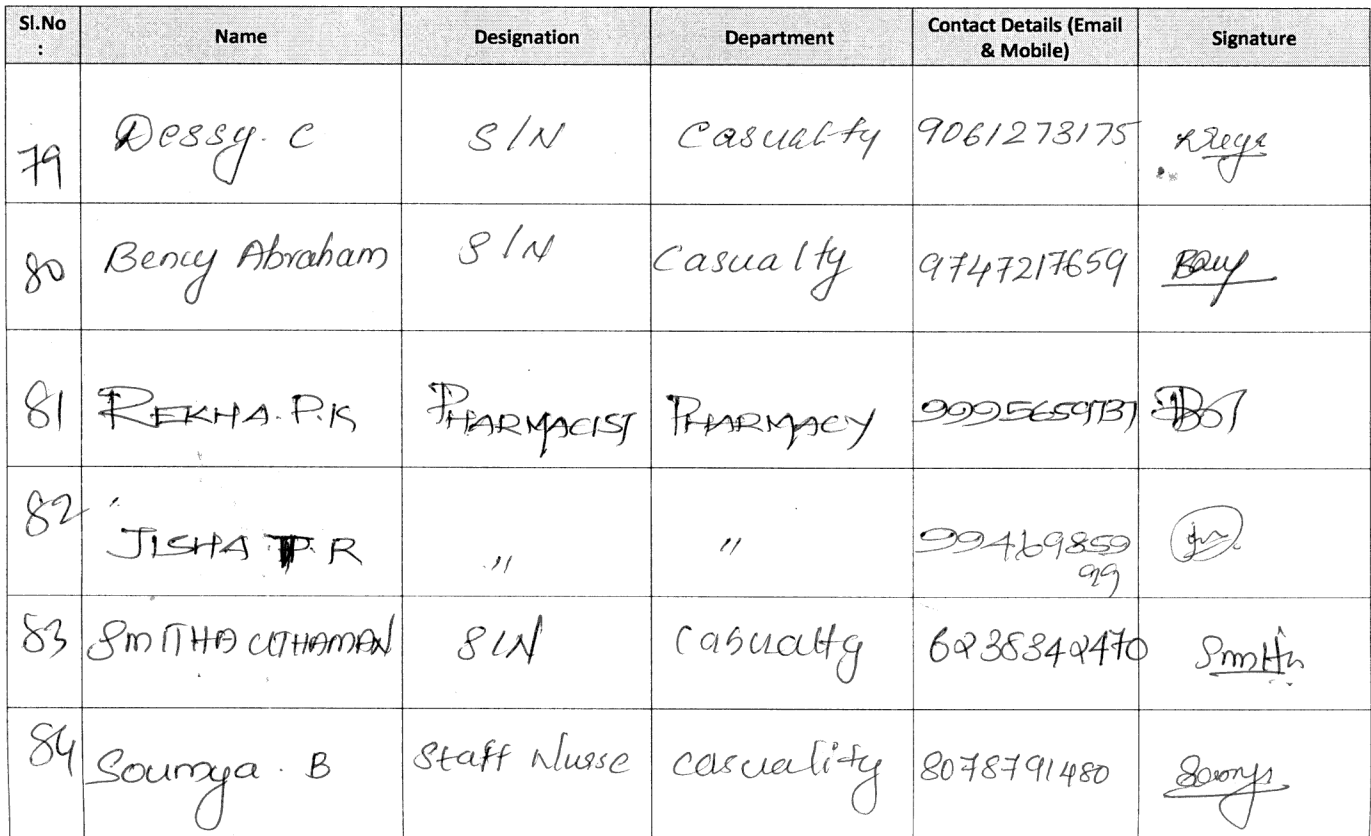 Sl.No : Name Designation Department Contact Details (Email & Mobile) Signature
79 Dessy. C S/N Casualty 9061273175
80 Bency Abraham S/N Casualty 9747217659 Bency
81 REKHA. P.K PHARMACIST PHARMACY
82 JISHA P. R " " 9946985999
83 SMITHA UTHAMAN S/N Casualty 6238342470 Smitha
84 Soumya. B Staff Nurse Casuality 8078791480 Soumya